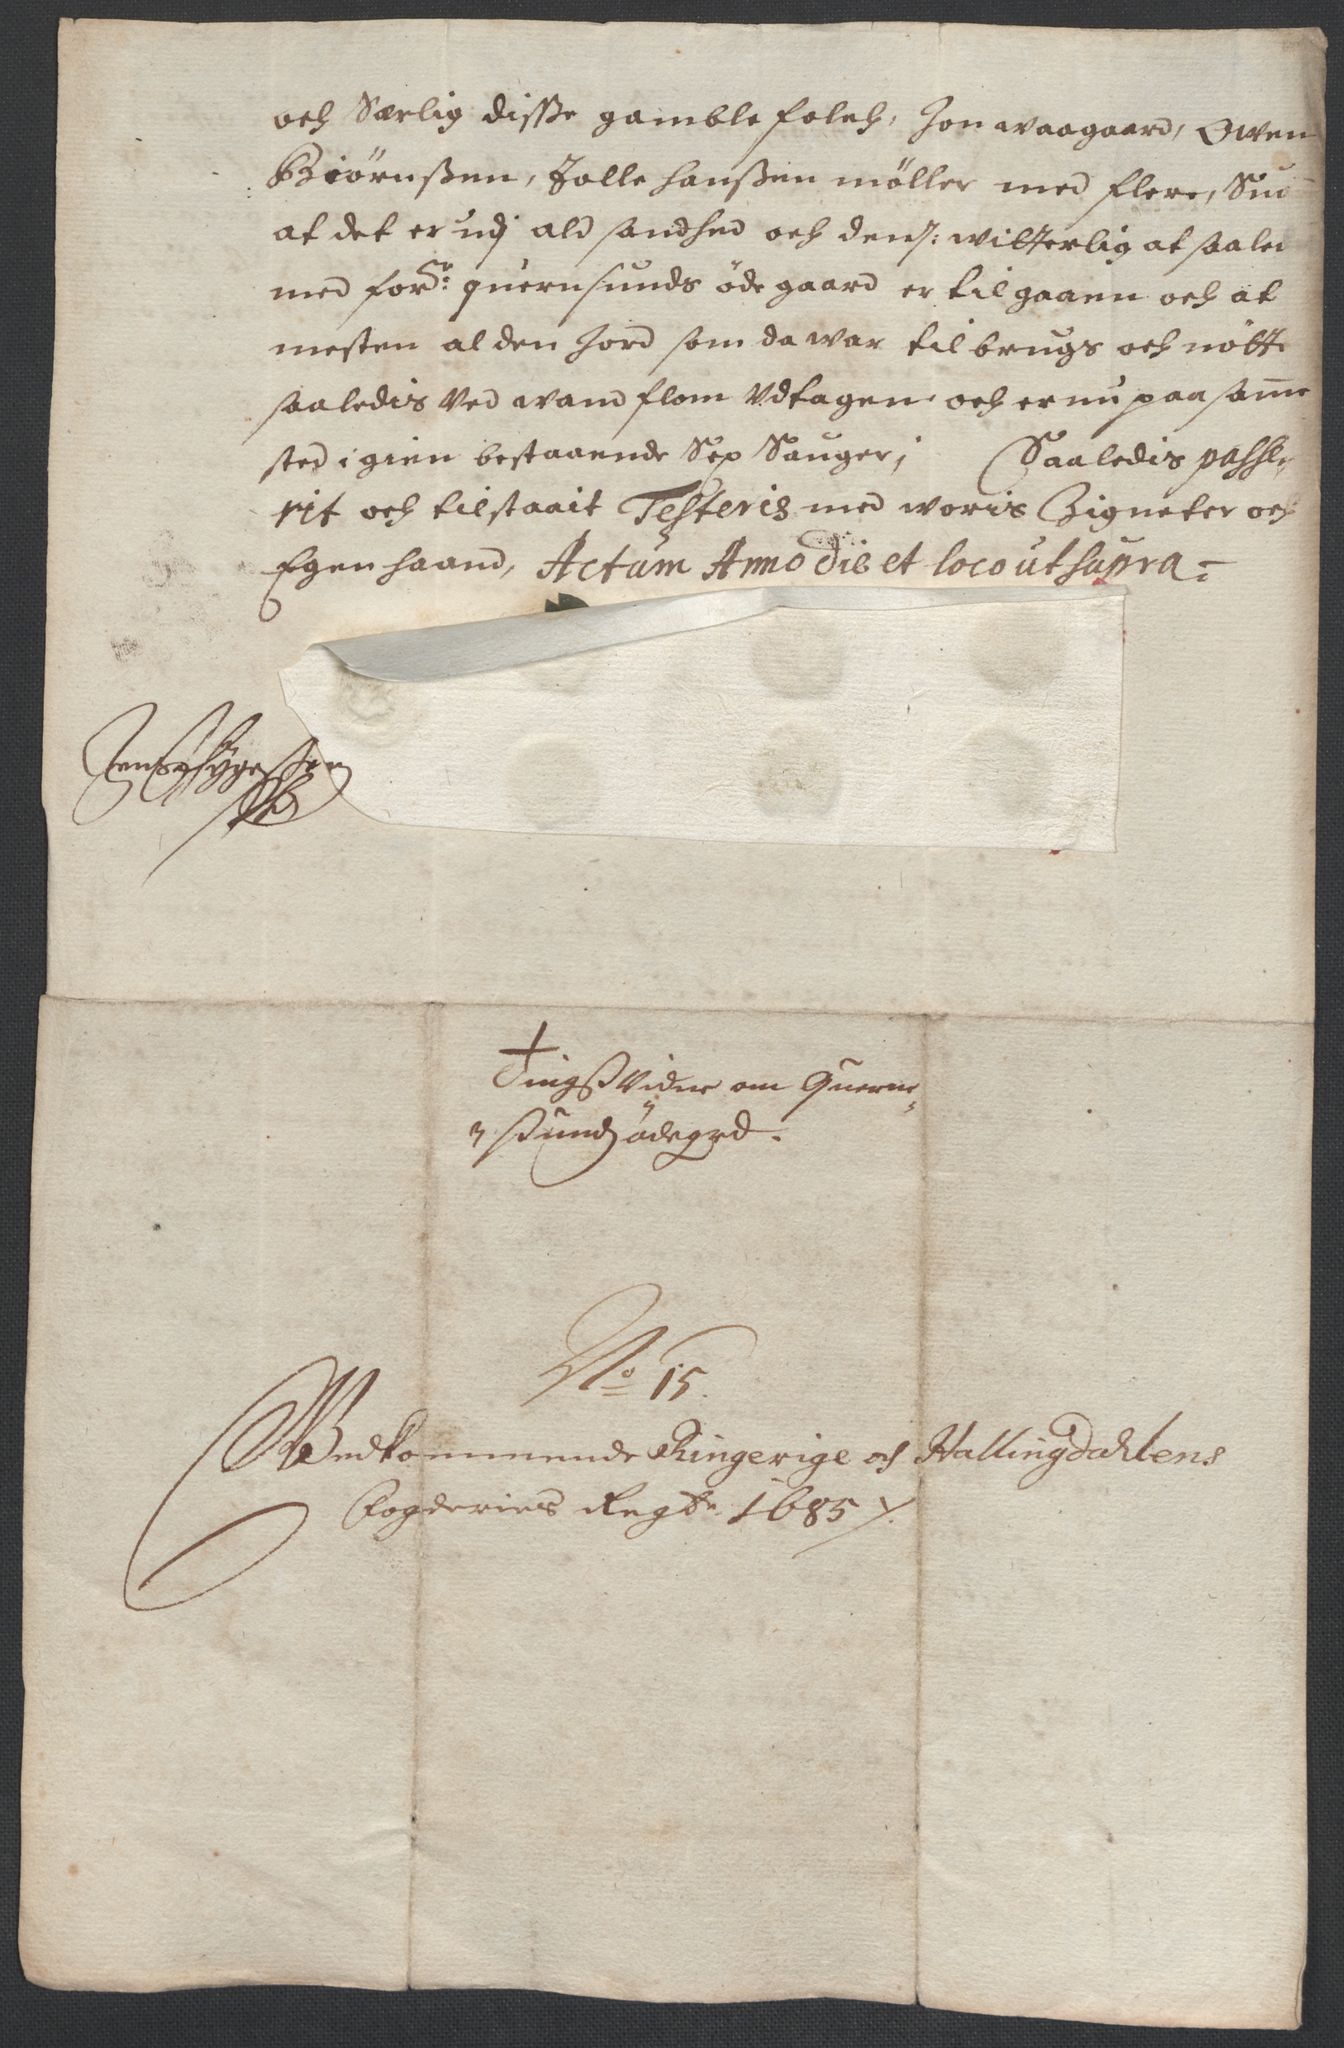 och Særlig disse gamble folch, Jon waagaard, Owen
Biørnssen, Jolle hanssen møller med flere,
at det er udj ald sandhed och denn: witterlig at saaled
med forne: quernsunds øde gaard er tilgaaen och at
mesten al den Jord som da war til brugs och nötte
saaledis Ved wand flom Vdtagen och er nu paa samme
sted igien bestaaende Sex Sauger; Saaledis passe,
rit och tilstaait Testeris med woris Zigneter och
Egen haand, Actum Anno die et loco ut supra
Tingsvidne om Querne,
sunds ödegrd.
No 15.
Vedkommende Ringerige og Hallingdahlens
Fogderies Regsk. 1685